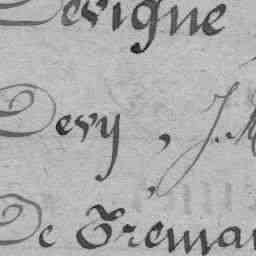 Devigne
Devy, J. M
De Treman